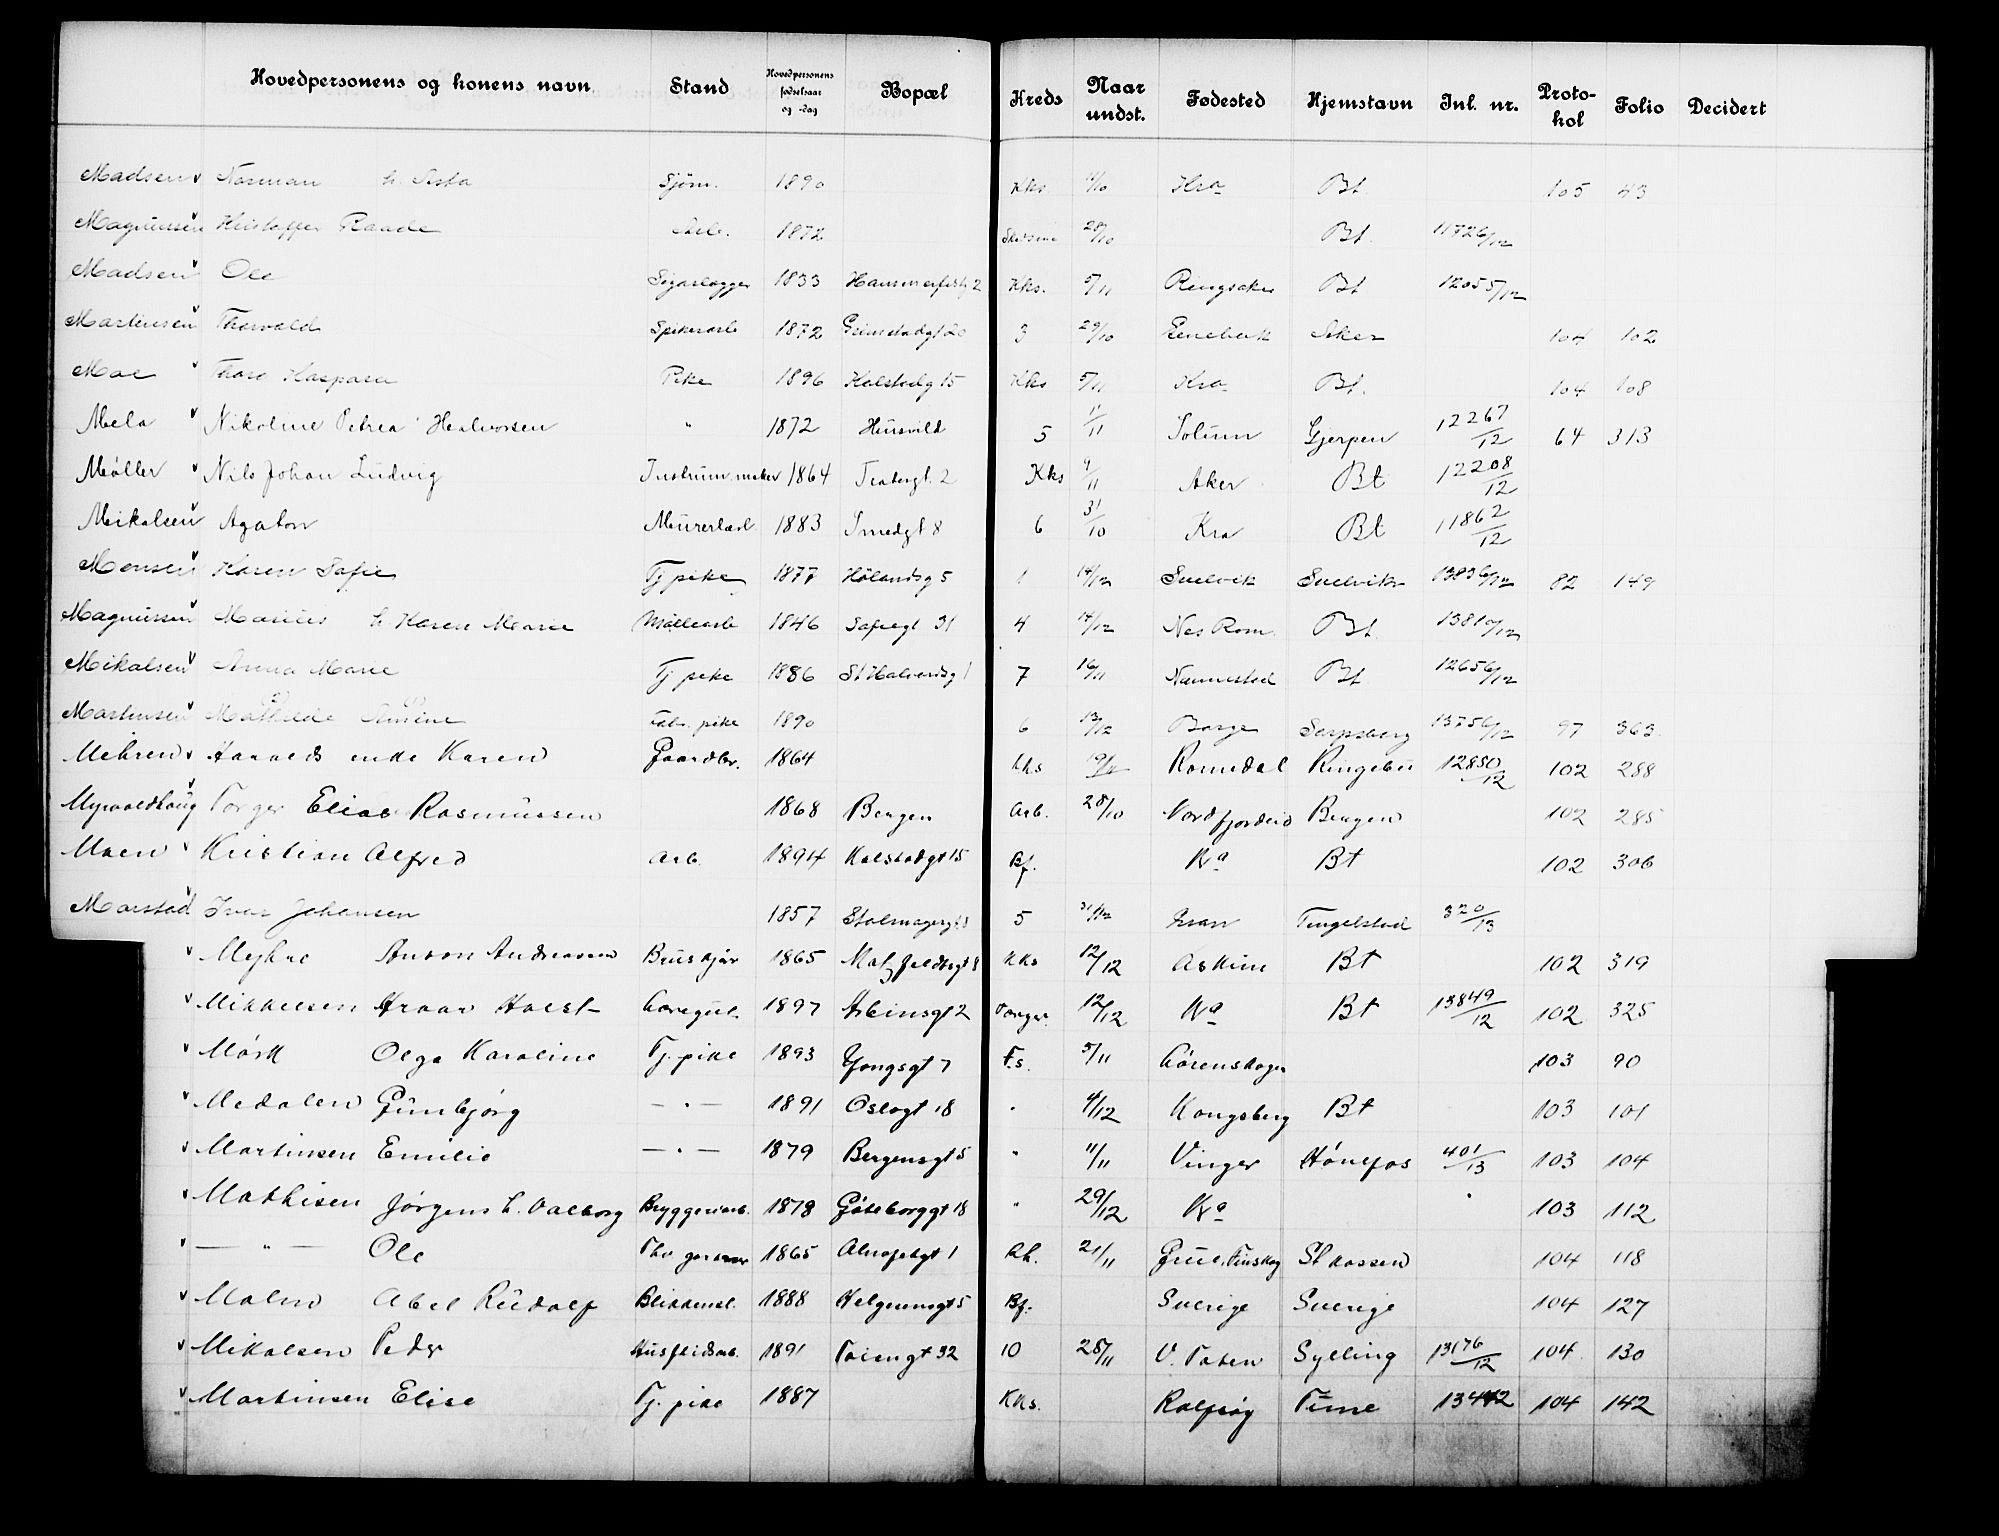 Hovedpersonens og konens navn Stand Hovedpersonens fødselsaar og -dag Bopæl Kreds Naar undst. Fødested Hjemstavn Inl. nr. Protokol Folio Decidert
Madsen v Norman h. Asta Sjöm. 1890 Kks. /10 Kra Bt 105 43
Magnussen v Kristoffer Raade Arb. 1872 28/10 Bt. 11726/12
Madsen v Ole 1833 Hammerfestg 2 Kks. 5/11 Ringsaker Bt 12055/12
Martinsen v Thorvald Spikerarb 1872 Grimstadgt 20 3 29/10 Enebak Aker 104 102
Moe v Thora Kaspara Pike 1896 Kalstadgt 15 Kks 5/11 Kra Bt. 104 108
Mela v Nikoline Petrea Halvorsen " 1872 Husvild 5 11/11 Solum Gjerpen 12267/12 64 313
Møller v Nils Johan Ludvig Instrum.maker 1864 Teatergt. 2 Kks 9/11 Aker Bt 12208/12
Mikalsen v Agaton Murerarb 1883 Smedgt 8 6 31/10 Kra Bt 11862/12
Monsen v Karen Sofie Tj pike 1877 Hölandsg 5 1 14/12 Svelvik Svelvik 13836/12 82 149
Magnussen v Marius h Karen Marie Møllearb 1846 Sofiegt 31 4 14/12 Nes Rom. Bt. 13810/12
Mikalsen v Anna Marie Tj pike 1886 St Halvardsg 1 7 16/11 Nannestad Bt. 12656/12
Martinsen v Mathilde Amine Fab. pike 1890 6 13/12 Borge Sarpsborg 13756/12 97 363
Mehren v Haralds enke Karen Gaardbr. 1864 Kks 19/11 Romedal Ringebu 12850/12 102 288
Myrvoldhaug v Torger Elias Rasmussen 1868 Bergen Arb. 28/10 Nordfjordeid Bergen 102 285
Moen v Kristian Alfred Arb. 1894 Kalstadgt 15 Bf. Kra Bt 102 306
Morstad v Ivar Johansen 1857 Stolmagergt 5 31/12 Gran Tingelstad 320/13
v Myhre Anton Andreassen Bruskjør 1865 Motzfeldtsgt 8 Kks 12/12 Askim Bt 102 319
v Mikkelsen Hroar Holst Caregut. 1897 Arbinsgt 2 12/12 Kra Bt 13849/12 102 325
v Mørk Olga Karoline Tj. pike 1893 Yongsgt 7 F.s. 5/11 Lørenskogen 103 90
v Medalen Gunbjørg — " — 1891 Oslogt 18 " 4/12 Kongsberg Bt 103 101
v Martinsen Emilie — " — 1879 Bergensgt 5 " 11/11 Vinger Hønefos 401/13 103 104
v Mathisen Jørgens h. Valborg Bryggeriarb. 1878 Gøteborggt 18 " 29/12 Kra 103 112
v — " — Ole 1865 Alnafetgt 1 Rk. 21/11 Grue, Finskog St kassen 104 118
v Malm Abel Rudolf Blikkensl. 1888 Helgesensgt 5 Bf. Sverige Sverige 104 127
v Mikalsen Peder Husflidsarb. 1891 Tøiengt 32 10 28/11 V. Toten Sylling 13176/12 104 130
v Martinsen Elise Tj. pike 1887 Kks. Rolfsøy Tune 13442 104 142